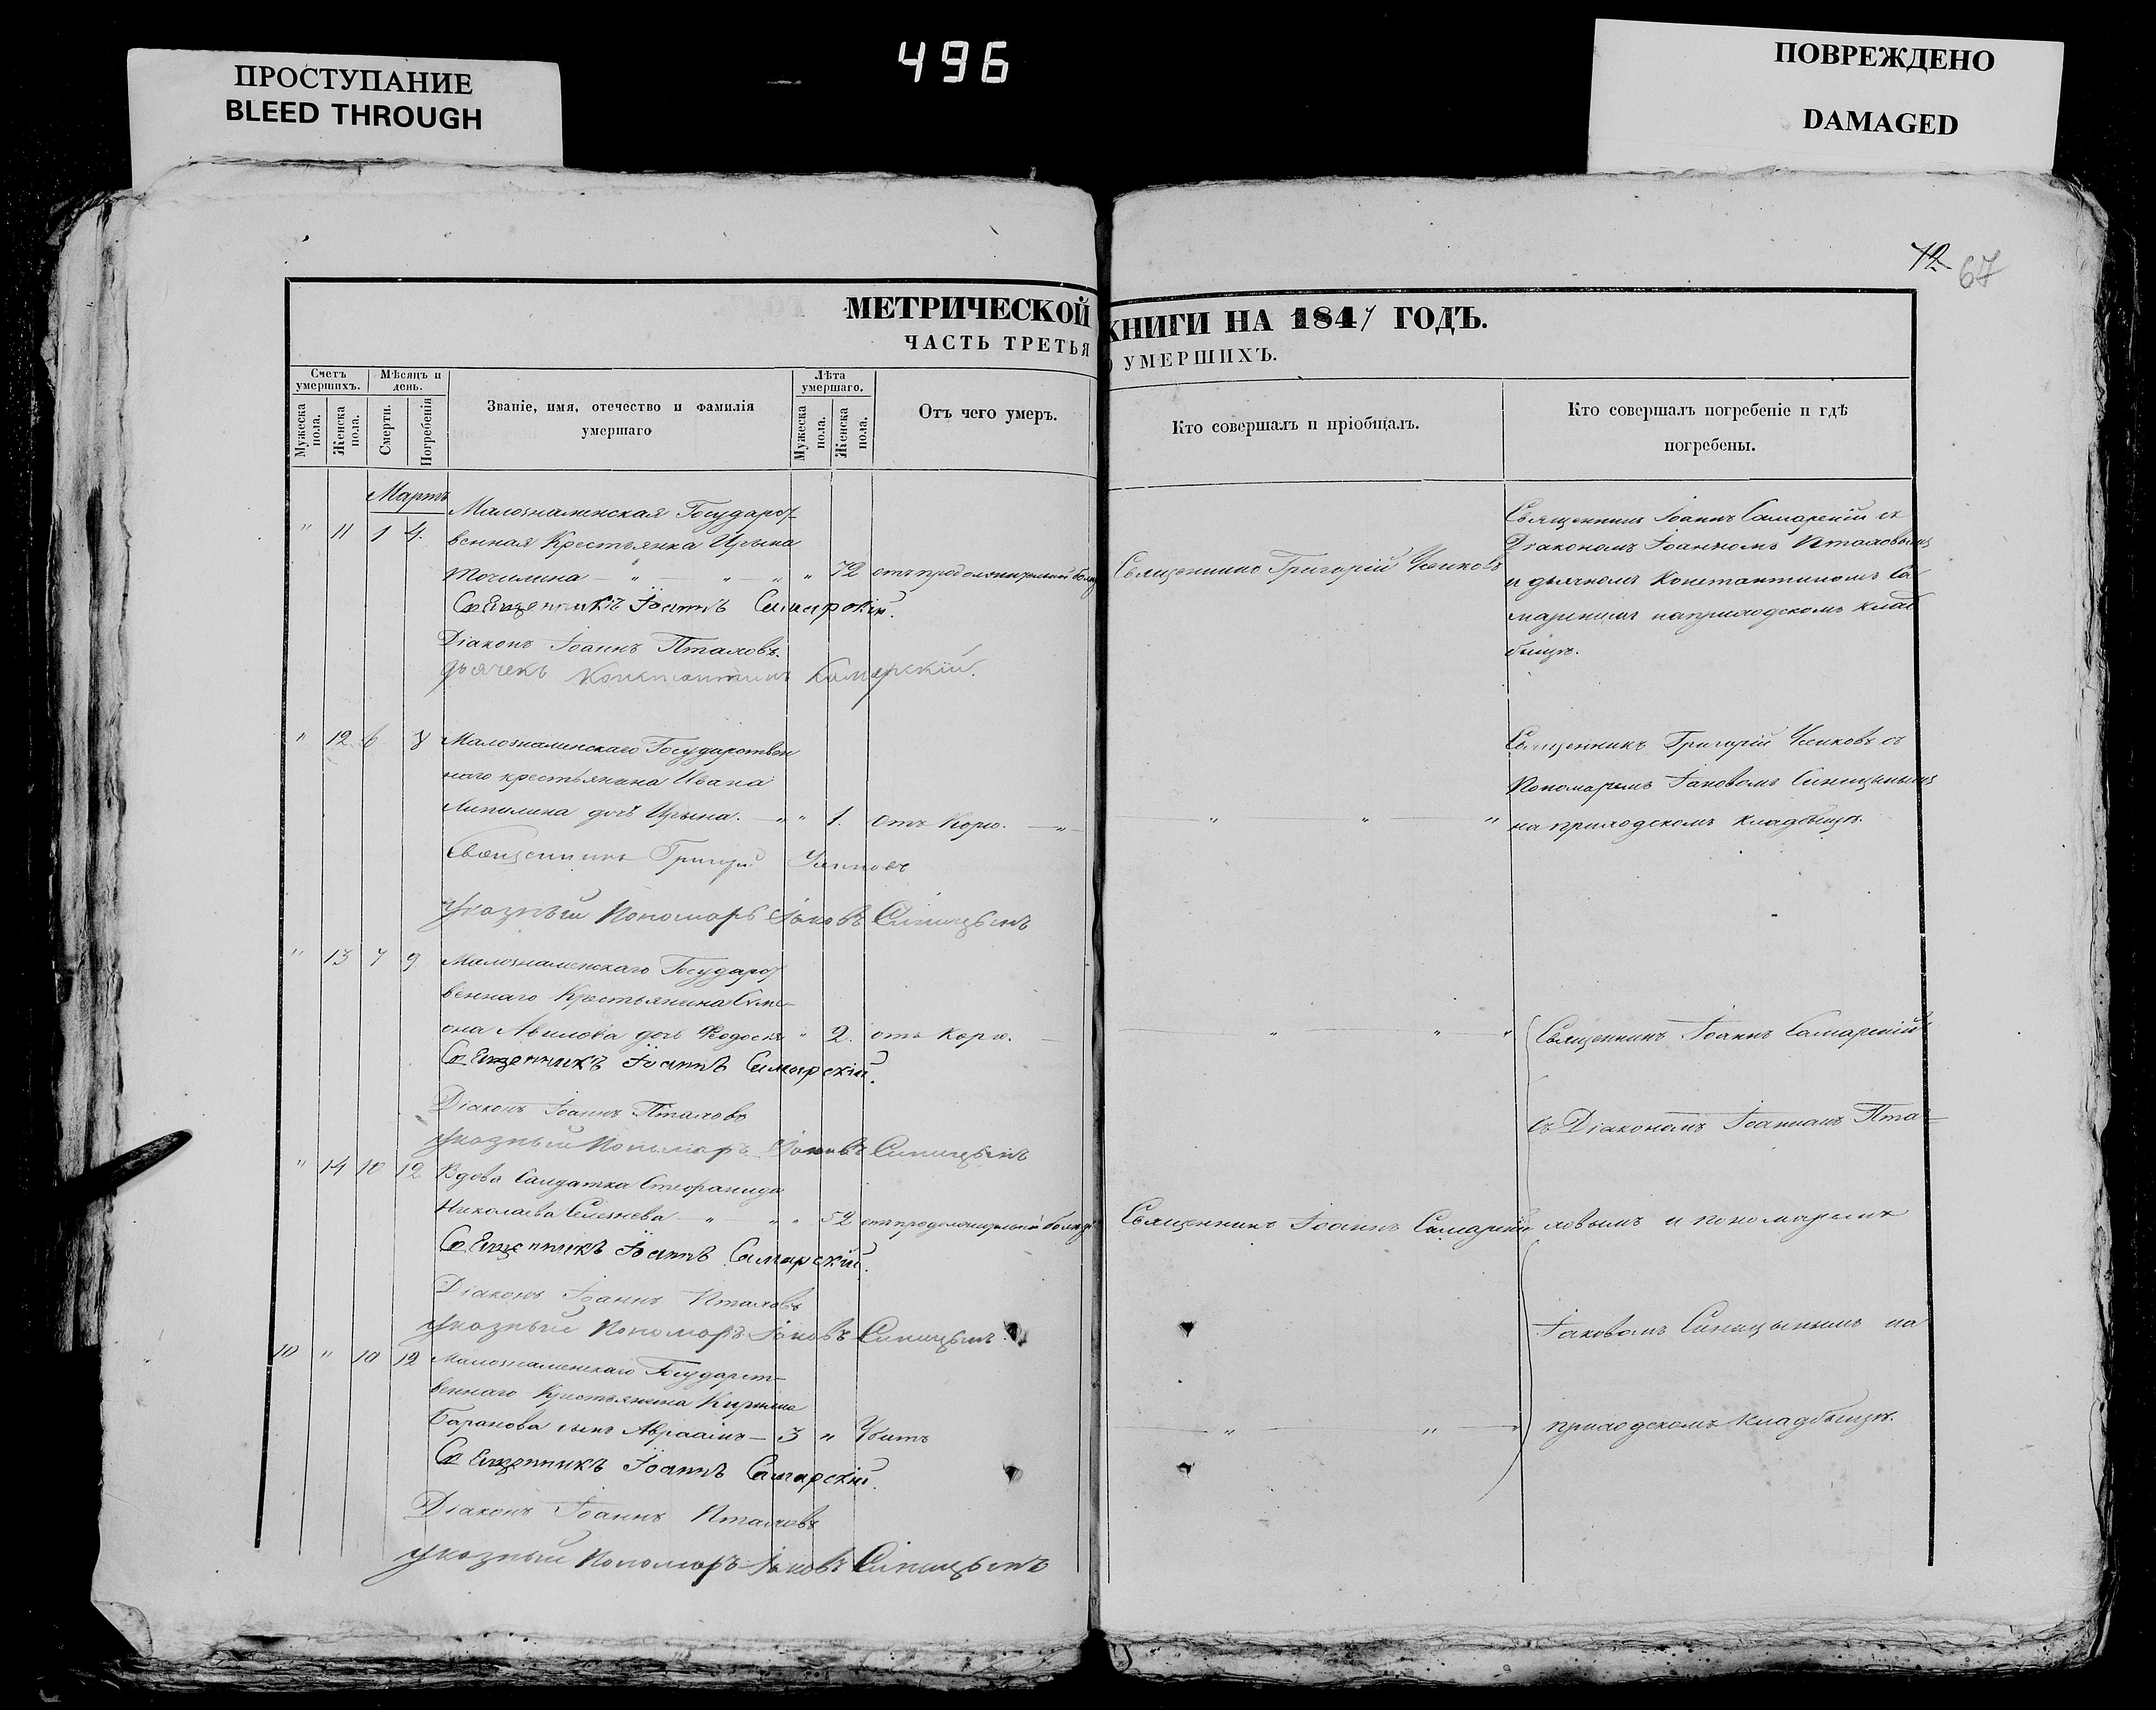 ПРОСТУПАНИЕ
BLEED THROUGH
496
ПОВРЕЖДЕНО
DAMAGED
12 67
МЕТРИЧЕСКОЙ КНИГИ НА 1847 ГОДЪ.
ЧАСТЬ ТРЕТЬЯ О УМЕРШИХЪ.
Счетъ умершихъ.
Мужеска пола.
Женска пола.
Мѣсяцъ и день.
Смерти.
Погребенія
Званіе, имя, отечество и фамилія умершаго
Лѣта умершаго.
Мужеска пола.
Женска пола.
Отъ чего умеръ.
Кто совершалъ и пріобщалъ.
Кто совершалъ погребеніе и гдѣ погребены.
Мартъ
" 11 1 4.
Малознаменская Государст
венная Крестьянка Ирына
Точилина — " — " " " 72 отъ продолжительной болез
Священникъ Григорій Усиковъ
Священникъ Іоаннъ Самарскій съ
Діакономъ Іоанномъ Пталовымъ
и дьячкомъ Константиномъ Са
марскимъ наприходскомъ клад
бищѣ.
Священникъ Іоаннъ Самарскій.
Діаконъ Іоаннъ Пталовъ.
Дьячекъ Константинъ Самарскій.
" 12 6 8
Малознаменскаго Государствен
наго крестьянина Ивана
дочь Ирына. — " " 1. отъ Кори. — "
" " "
Священникъ Григорій Усиковъ съ
Пономаремъ Іаковомъ Синицынымъ
на приходскомъ кладбищѣ.
Священникъ Григорій Усиковъ
Указный Пономарь Іаковъ Синицынъ
" 13 7 9
Малознаменскаго Государст
веннаго Крестьянина Симе-
она Авилова дочь Ѳеодосія " 2. отъ Кори. —
" " "
Священникъ Іоаннъ Самарскій
Священникъ Іоаннъ Самарскій.
Діаконъ Іоаннъ Пталовъ
Указный Пономарь Іаковъ Синицынъ
съ Діакономъ Іоанномъ Пта-
" 14 10 12
Вдова Салдатка Стефанида
Николаева Селезнева — " — " " 52 отъ продолжительной болезн
Священникъ Іоаннъ Самарскій
ловымъ и пономаремъ
Священникъ Іоаннъ Самарскій.
Діаконъ Іоаннъ Пталовъ
Указный Пономарь Іаковъ Синицынъ
Іаковомъ Синицынымъ на
10 " 10 12
Малознаменскаго Государст-
веннаго Крестьянина Кирила
Баранова сынъ Авраамъ — 3 " Убитъ
" " "
приходскомъ кладбищѣ.
Священникъ Іоаннъ Самарскій.
Діаконъ Іоаннъ Пталовъ
Указный Пономарь Іаковъ Синицынъ